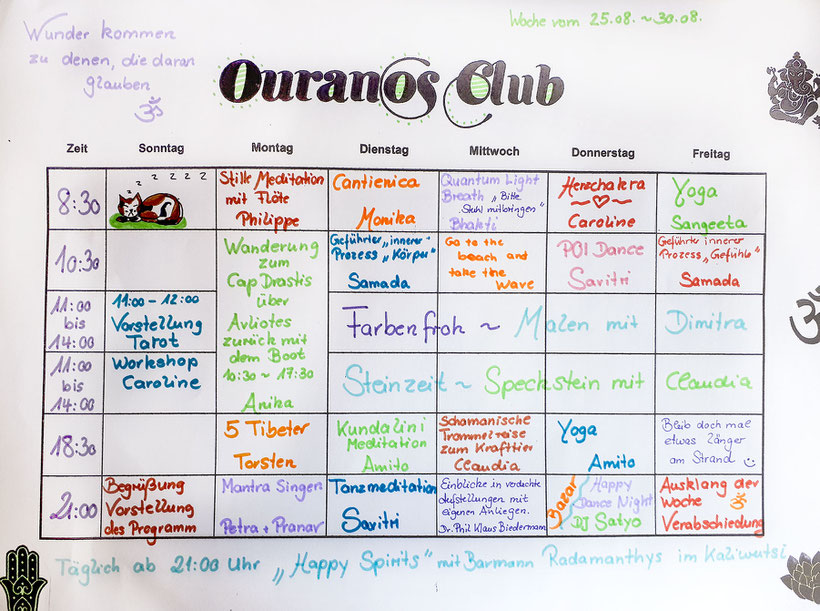 Wunder kommen
zu denen, die daran
glauben
Woche vom 25.08. ~ 30.08.
Ouranos Club
Zeit Sonntag Montag Dienstag Mittwoch Donnerstag Freitag
8:30
z z z z z
Stille Meditation
mit Flöte
Philippe
Cantienica
Monika
Quantum Light
Breath „Bitte
Stuhl mitbringen"
Bhakti
Herzchakra
~♡~
Caroline
Yoga
Sangeeta
10:30
Wanderung
zum
Cap Drastis
über
Avliotes
zurück mit
dem Boot
10:30 ~ 17:30
Anika
Geführter „innerer-
Prozess „Körper"
Samada
Go to the
beach and
take the
Wave
POI Dance
Savitri
Geführter innerer
Prozess „Gefühle"
Samada
11:00
bis
14:00
11:00 - 12:00
Vorstellung
Tarot
Workshop
Caroline
Farbenfroh ~ Malen mit Dimitra
11:00
bis
14:00
Steinzeit ~ Speckstein mit Claudia
18:30
5 Tibeter
Torsten
Kundalini
Meditation
Amito
Schamanische
Trommelreise
zum Krafttier
Claudia
Yoga
Amito
Bleib doch mal
etwas länger
am Strand
21:00
Begrüßung
Vorstellung
des Programm
Mantra Singen
Petra + Pranav
Tanzmeditation
Savitri
Einblicke in verdeckte
Aufstellungen mit
eigenen Anliegen.
Dr. Phil Klaus Biedermann
Bazar
Happy
Dance Night
DJ Satyo
Ausklang der
Woche ॐ
Verabschiedung
Täglich ab 21:00 Uhr „Happy Spirits" mit Barmann Radamanthys im Kaliwutsi